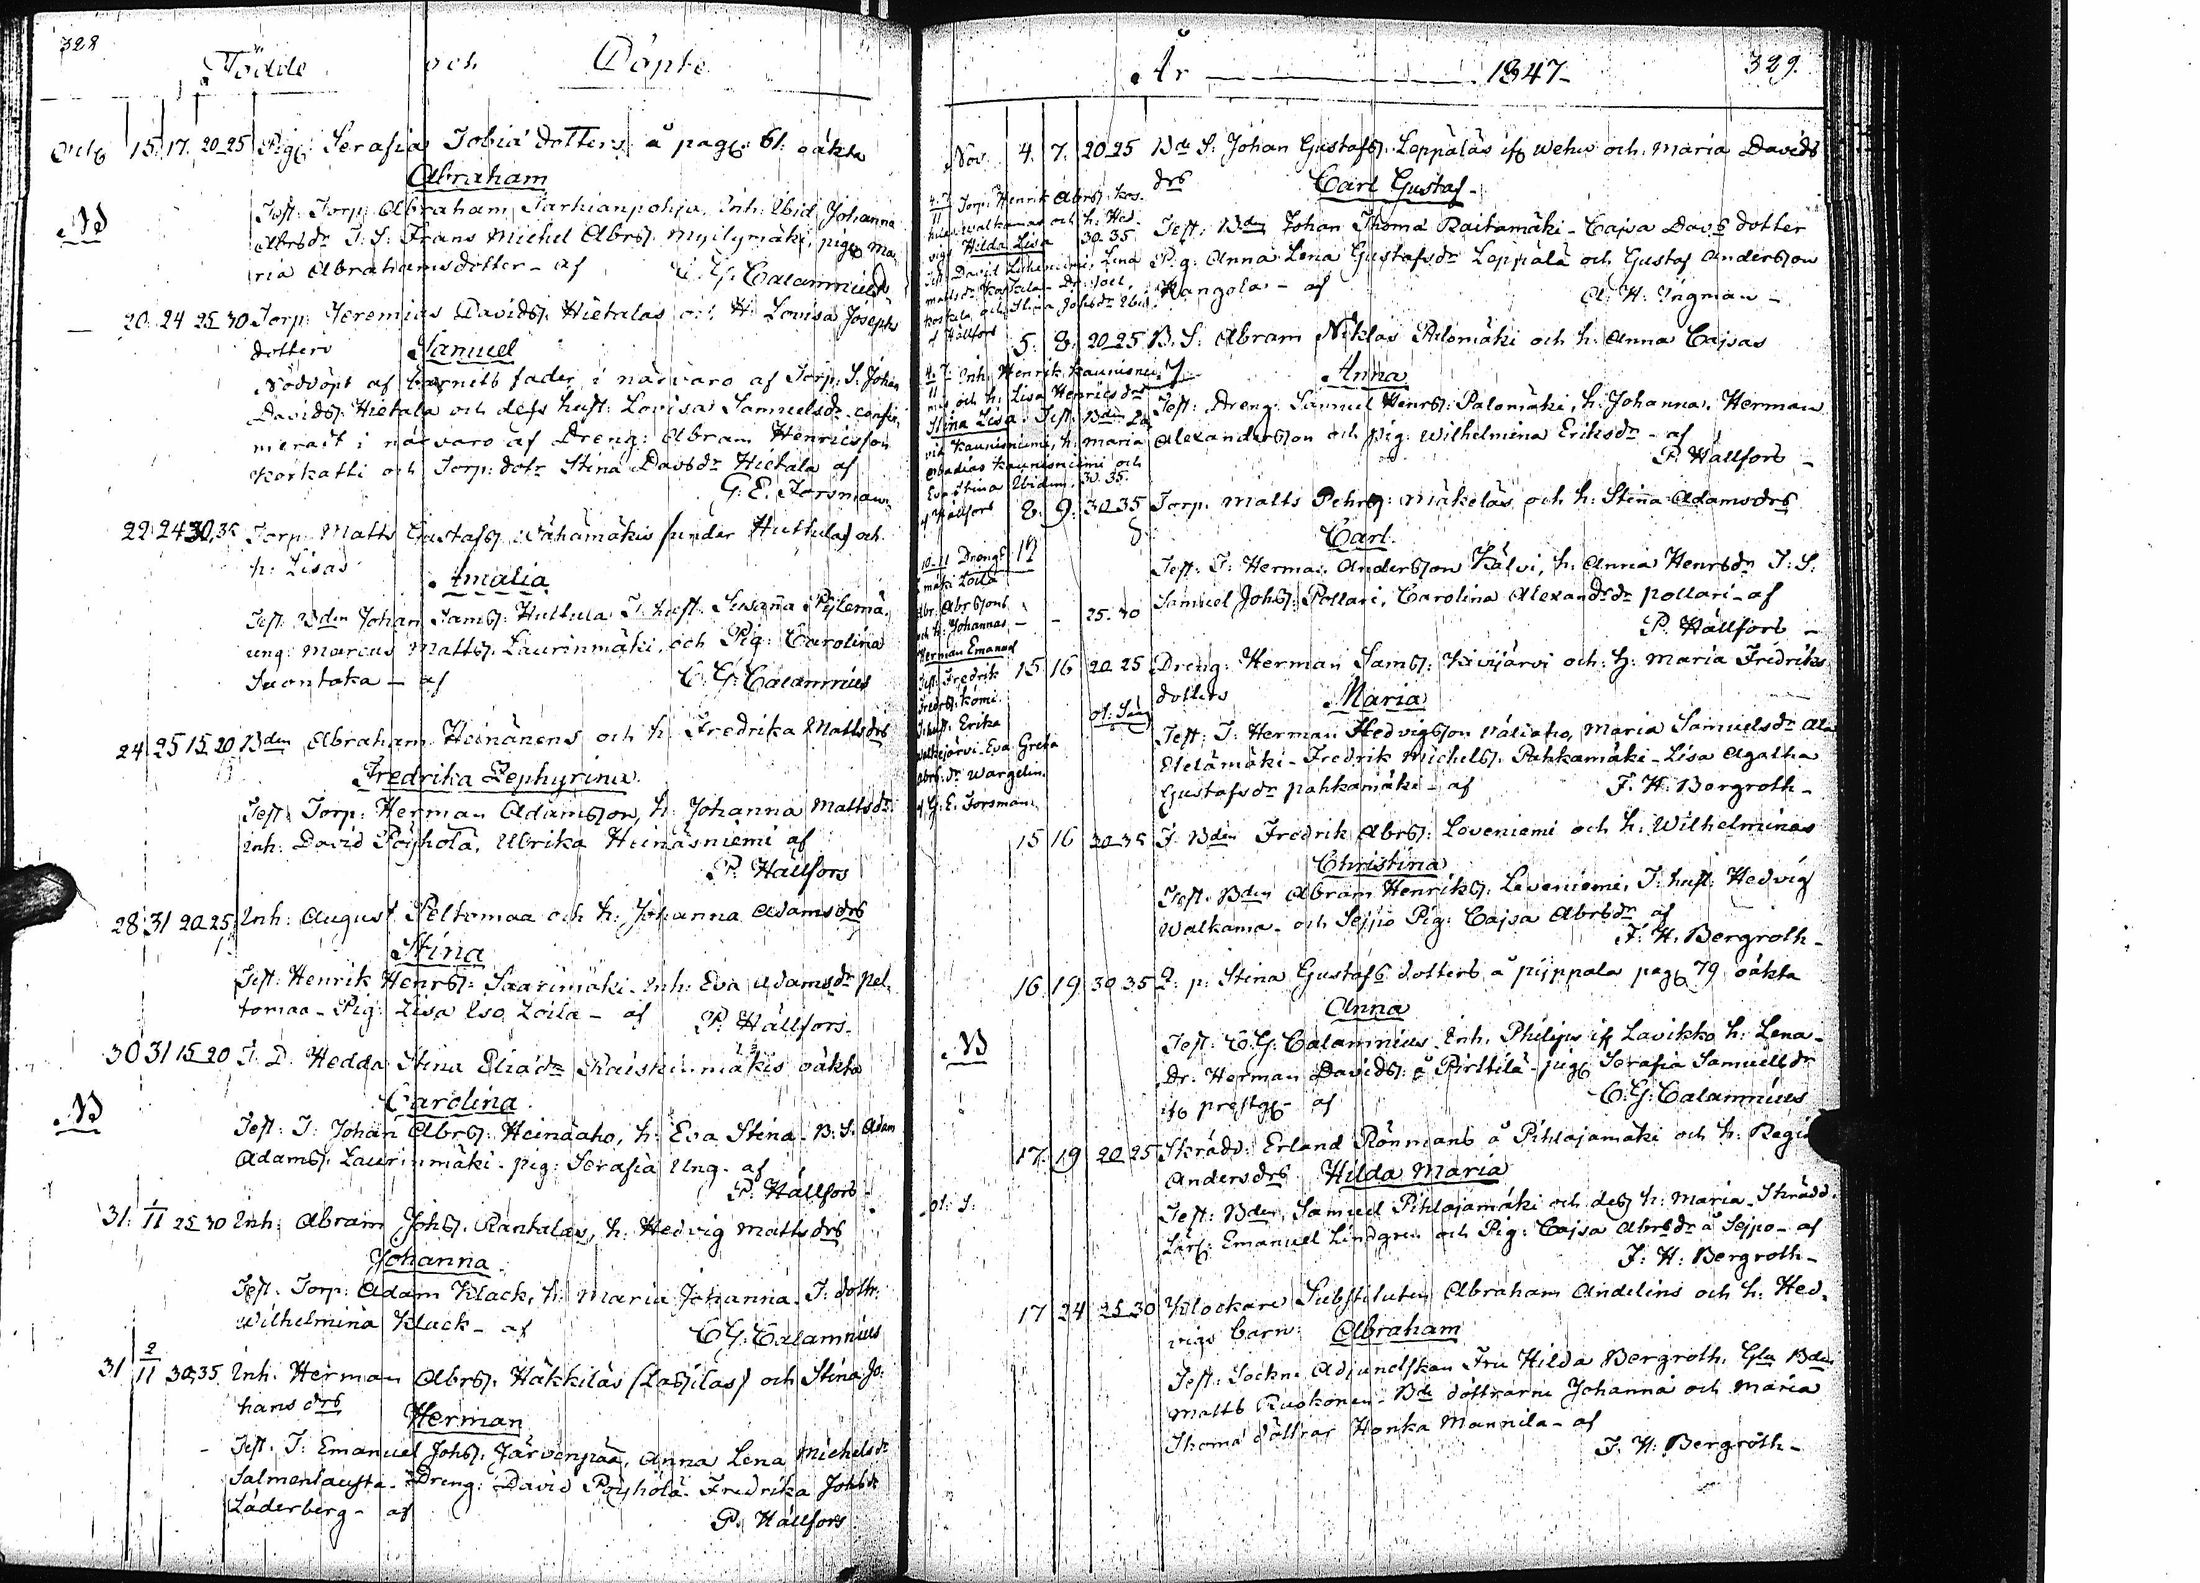 328
Födde och Döpte
Octb 15. 17. 20-25 Pig: Serafia Tobiä dotters å pag: 61. oäkta
Abraham
Test: Torp: Abraham Parhianpohja, Inh: Ibid Johanna
Abrsdr T: S: Frans Michel Abrs. Myllymäki, pig: Ma
ria Abrahamsdotter - af C. G. Calamnius
— 20. 24 25-30 Torp: Jeremias Davids. Hietalas och H. Lovisa Josephs
dotters Samuel
Nöddöpt af barnets fader i närvaro af Torp: S. Johan
Davids. Hietala och dess hust: Lovisa Samuelsdr confir,
merait i närvaro af Dreng: Abram Henricsson
Korkatti och Torp: dotr Stina Davsdr Hietala af
G. E. Forsman
22 24 30,35 Torp: Matts Gustafs. Wähämäkis (under Huttula) och
h: Lisas Amalia
Test: Bden Johan Jams. Huttula T: hust. Susanna Pylemä,
ung: Marcus Matts. Laurinmäki, och Pig: Carolina
Suontaka - af C. G. Calamnius
24 25 15 20 Bden Abraham Heinänens och h. Fredrika Mattsdrs
Fredrika Zephyrina
Test: Torp: Herman Adamsson, h: Johanna Mattsdr
Inh: David Pöyhölä, Ulrika Heinäsniemi af
P. Hällfors
28 31 20-25 Inh: August Peltomaa och h: Johanna Adamsdrs
Stina
Test: Henrik Henrs. Saarimäki. Inh: Eva Adamsdr Pel
tomaa - Pig: Lisa Iso Zoila - af P. Hällfors.
30 31 15-20 T. D. Hedda Stina Eliädr Raiskinmäkis oäkta
Carolina
Test: T: Johan Abrs. Heinäaho, h: Eva Stina - B. S. Adam
Adams. Laurinmäki - pig: Serafia Ung - af
P. Hällfors -
31. 1/11 25 30 Inh: Abram Johs. Rantalas, h: Hedvig Mattsdrs
Johanna
Test: Torp: Adam Klack, h: Maria Johanna. T: dottr:
Wilhelmina Klack - af C. G. Calamnius
31 2/11 30,35 Inh: Herman Abrs. Häkkiläs (Lassilas) och Stina Jo:
hansdrs Herman
Test: T: Emanuel Johs. Järvenpää, Anna Lena Michelsdr
Salmenlausta - Dreng: David Pöyhölä - Fredrika Johsdr
Läderberg - af P. Hällfors
År 1847 329.
Nov. 4. 7. 20 25 Bde S: Johan Gustafs. Leppäläs if Wehu och Maria Davids
drs Carl Gustaf -
Test: Bden Johan Thomä Raitamäki - Cajsa Davs dotter
P:g: Anna Lena Gustafsdr Leppälä och Gustaf Andersson
Kangola - af A. H. Ingman -
4. 7. 11 Torp: Henrik Abrs. Kos.
och h: Hed.
vigs Hilda Lisa 30 35
Lena
af Hällfors
5. 8. 20-25 B. S: Abram Niklas Palomäki och h: Anna Cajsas
Anna
Test: Dreng: Samuel Henrs. Palomäki, h: Johanna. Herman
Alexandersson och Pig: Wilhelmina Eriksdr - af
P. Hällfors -
4. 7. 11 Inh: Henrik Kaunisnie,
mis och h: Lisa Henricsdr
Stina Lisa. Test: Bden Da
vid Kaunisniemi, h: Maria
Obadias Kaunisniemi och
Eva Stina Ibidem. 30-35.
af Hällfors
8. 9. 30 35 Torp. Matts Pehrs. Mäkeläs och h: Stina Adamsdrs
Carl.
Test: T: Herman Andersson Kälvi, h: Anna Henrsdr T: S:
Samuel Johs. Pollari, Carolina Alexandsdr Pollari - af
P. Hällfors -
10-11 Dreng: 12
Abr: Abrssons
och h: Johannas - - 25-30
Herman Emanuel
Test: Fredrik
Fredrs. Komi.
T: hust: Erika
Eva Greta
Abrs. dr Wargelin.
af G. E. Forsman.
15 16 20 25 Dreng: Herman Sams. Kivijärvi och h: Maria Fredriks
dotters Maria
Test: T: Herman Hedvigsson Väliaho, Maria Samuelsdr Ala
Etelämäki - Fredrik Michels. Pahkamäki - Lisa Agatha
Gustafsdr Pahkamäki - af F. H. Bergroth -
15 16 30-35 T. Bden Fredrik Abrs. Leveniemi och h: Wilhelminas
Christina
Test: Bden Abram Henriks. Leveniemi, T: hust: Hedvig
Walkama - och Seppo Pig: Cajsa Abrsdr af
F. H. Bergroth -
16 19 30 35 Q: p: Stina Gustafs dotters å Pyppala pag: 79 oäkta
Anna
Test: C. G. Calamnius, Inh. Philipus if Lavikko h: Lena -
Dr. Herman Davids. å Pirttilä - pig: Serafia Samuelsdr
ifr prestg: - af C. G. Calamnius
17. 19 20 25 Skrädd: Erland Rönmans å Pihlajamäki och h: Regi
Andersdrs Hilda Maria
Test: Bden Samuel Pihlajamäki och dess h: Maria - Skrädd.
Lärl: Emanuel Lindgren och Pig: Cajsa Abrsdr å Sejpo - af
F. H. Bergroth -
17 24 25 30 Klockare Substituten Abraham Andelins och h: Hed,
vigs barn: Abraham
Test: Sockne Adjunctskan Fru Hilda Bergroth, Gla Bden
Matts Ruokonen - Bde döttrarne Johanna och Maria
Thomä döttrar Honka Mannila - af
F. H. Bergroth -